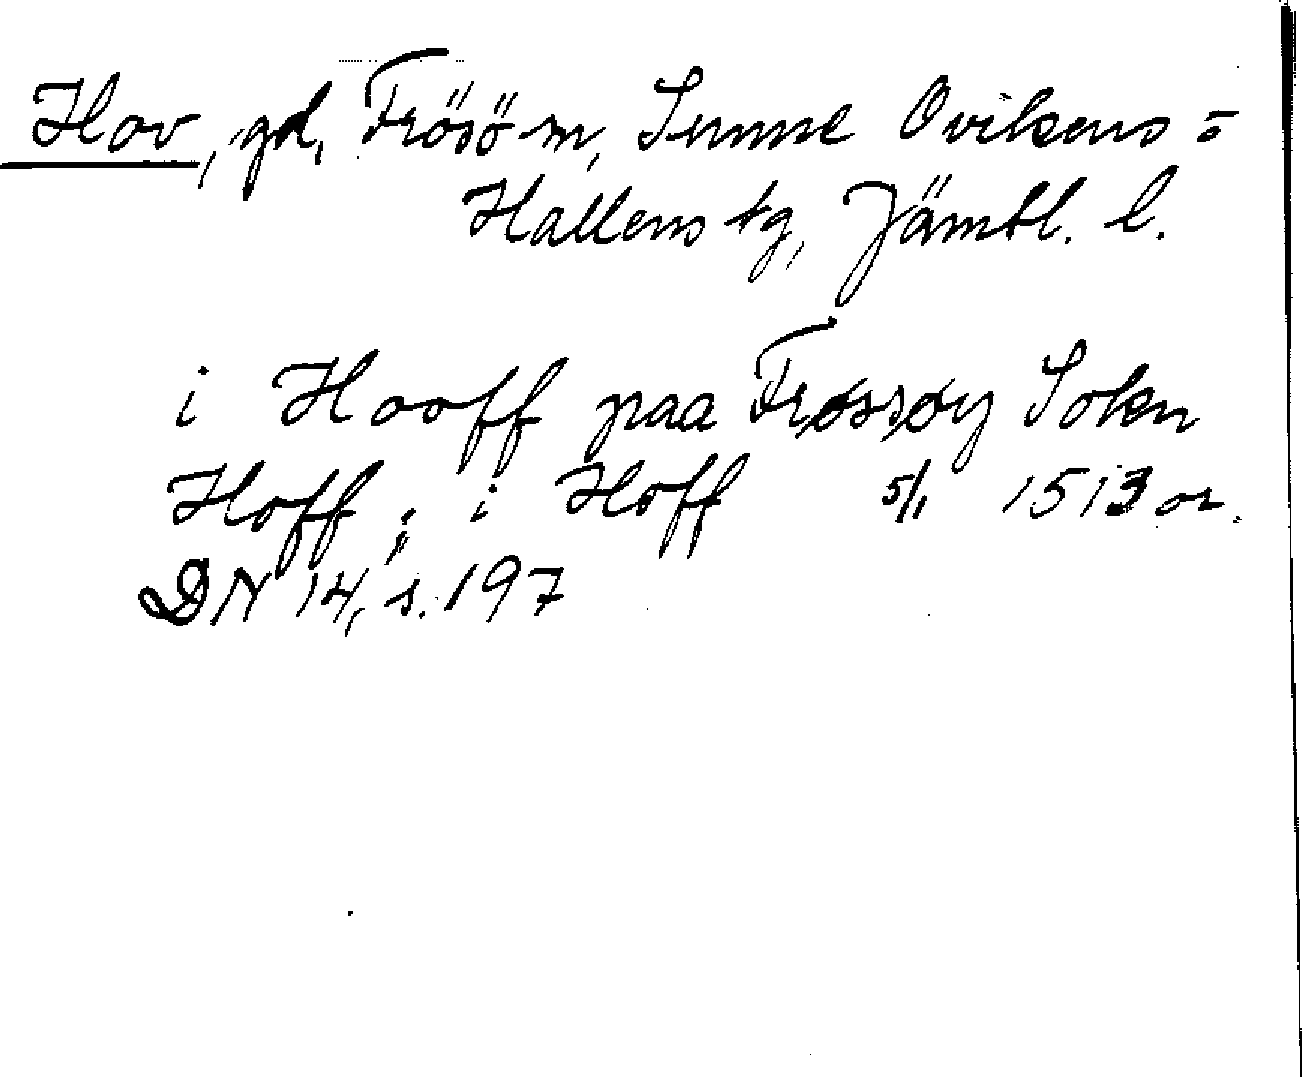 Hov, gd, Frösö sn, Sunne Ovikens o
Hallens tg, Jämtl. l.
i Hooff paa Frøssøy Sokn
Hoff; i Hoff 5/1 1513 or.
DN 14, s. 197